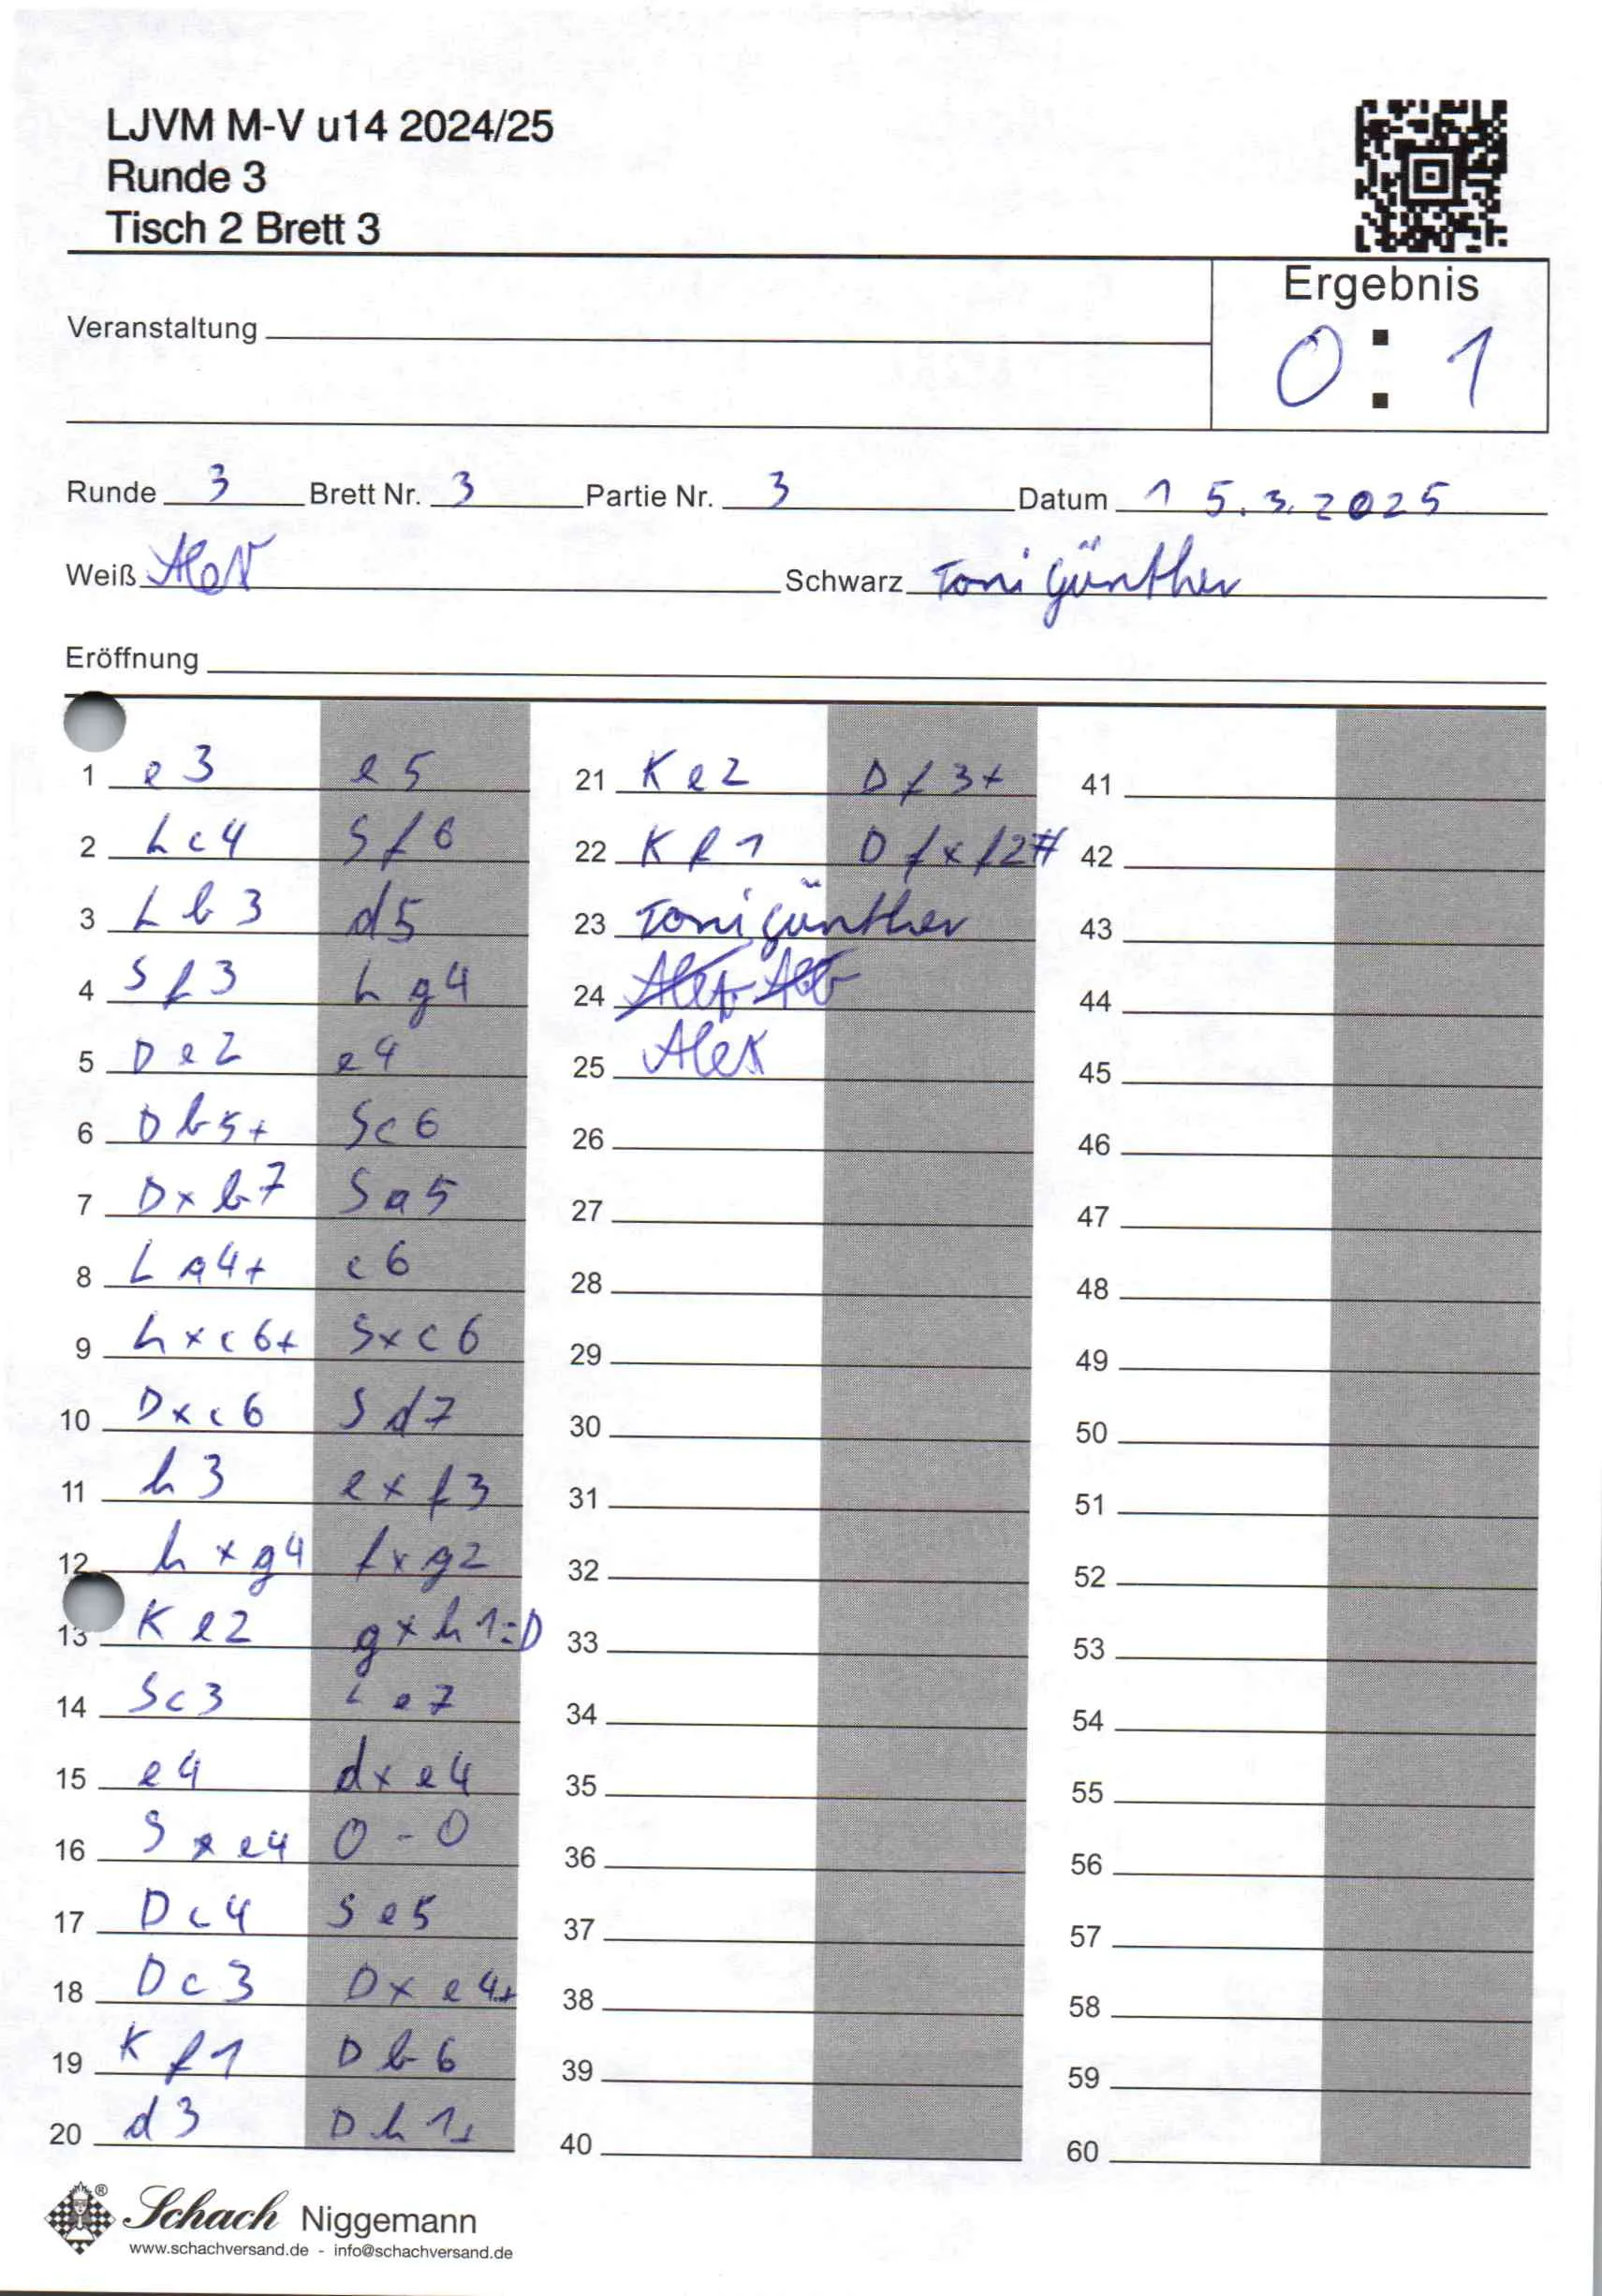 LJVM M-V u14 2024/25
Runde 3
Tisch 2 Brett 3
Ergebnis
0 : 1
Veranstaltung
Runde 3 Brett Nr. 3 Partie Nr. 3 Datum 15.3.2025
Weiß Alex Schwarz Toni Günther
Eröffnung
1 e3 e5
2 Lc4 Sf6
3 Lb3 d5
4 Sf3 Lg4
5 De2 e4
6 Db5+ Sc6
7 Dxb7 Sa5
8 La4+ c6
9 Lxc6+ Sxc6
10 Dxc6 Sd7
11 h3 exf3
12 hxg4 fxg2
13 Ke2 gxh1=D
14 Sc3 Le7
15 e4 dxe4
16 Sxe4 0-0
17 Dc4 Se5
18 Dc3 Dxe4+
19 Kf1 Db6
20 d3 Dh1+
21 Ke2 Df3+
22 Kf1 Dfxf2#
23 Toni Günther
24
25 Alex
26
27
28
29
30
31
32
33
34
35
36
37
38
39
40
41
42
43
44
45
46
47
48
49
50
51
52
53
54
55
56
57
58
59
60
Schach Niggemann
www.schachversand.de - info@schachversand.de